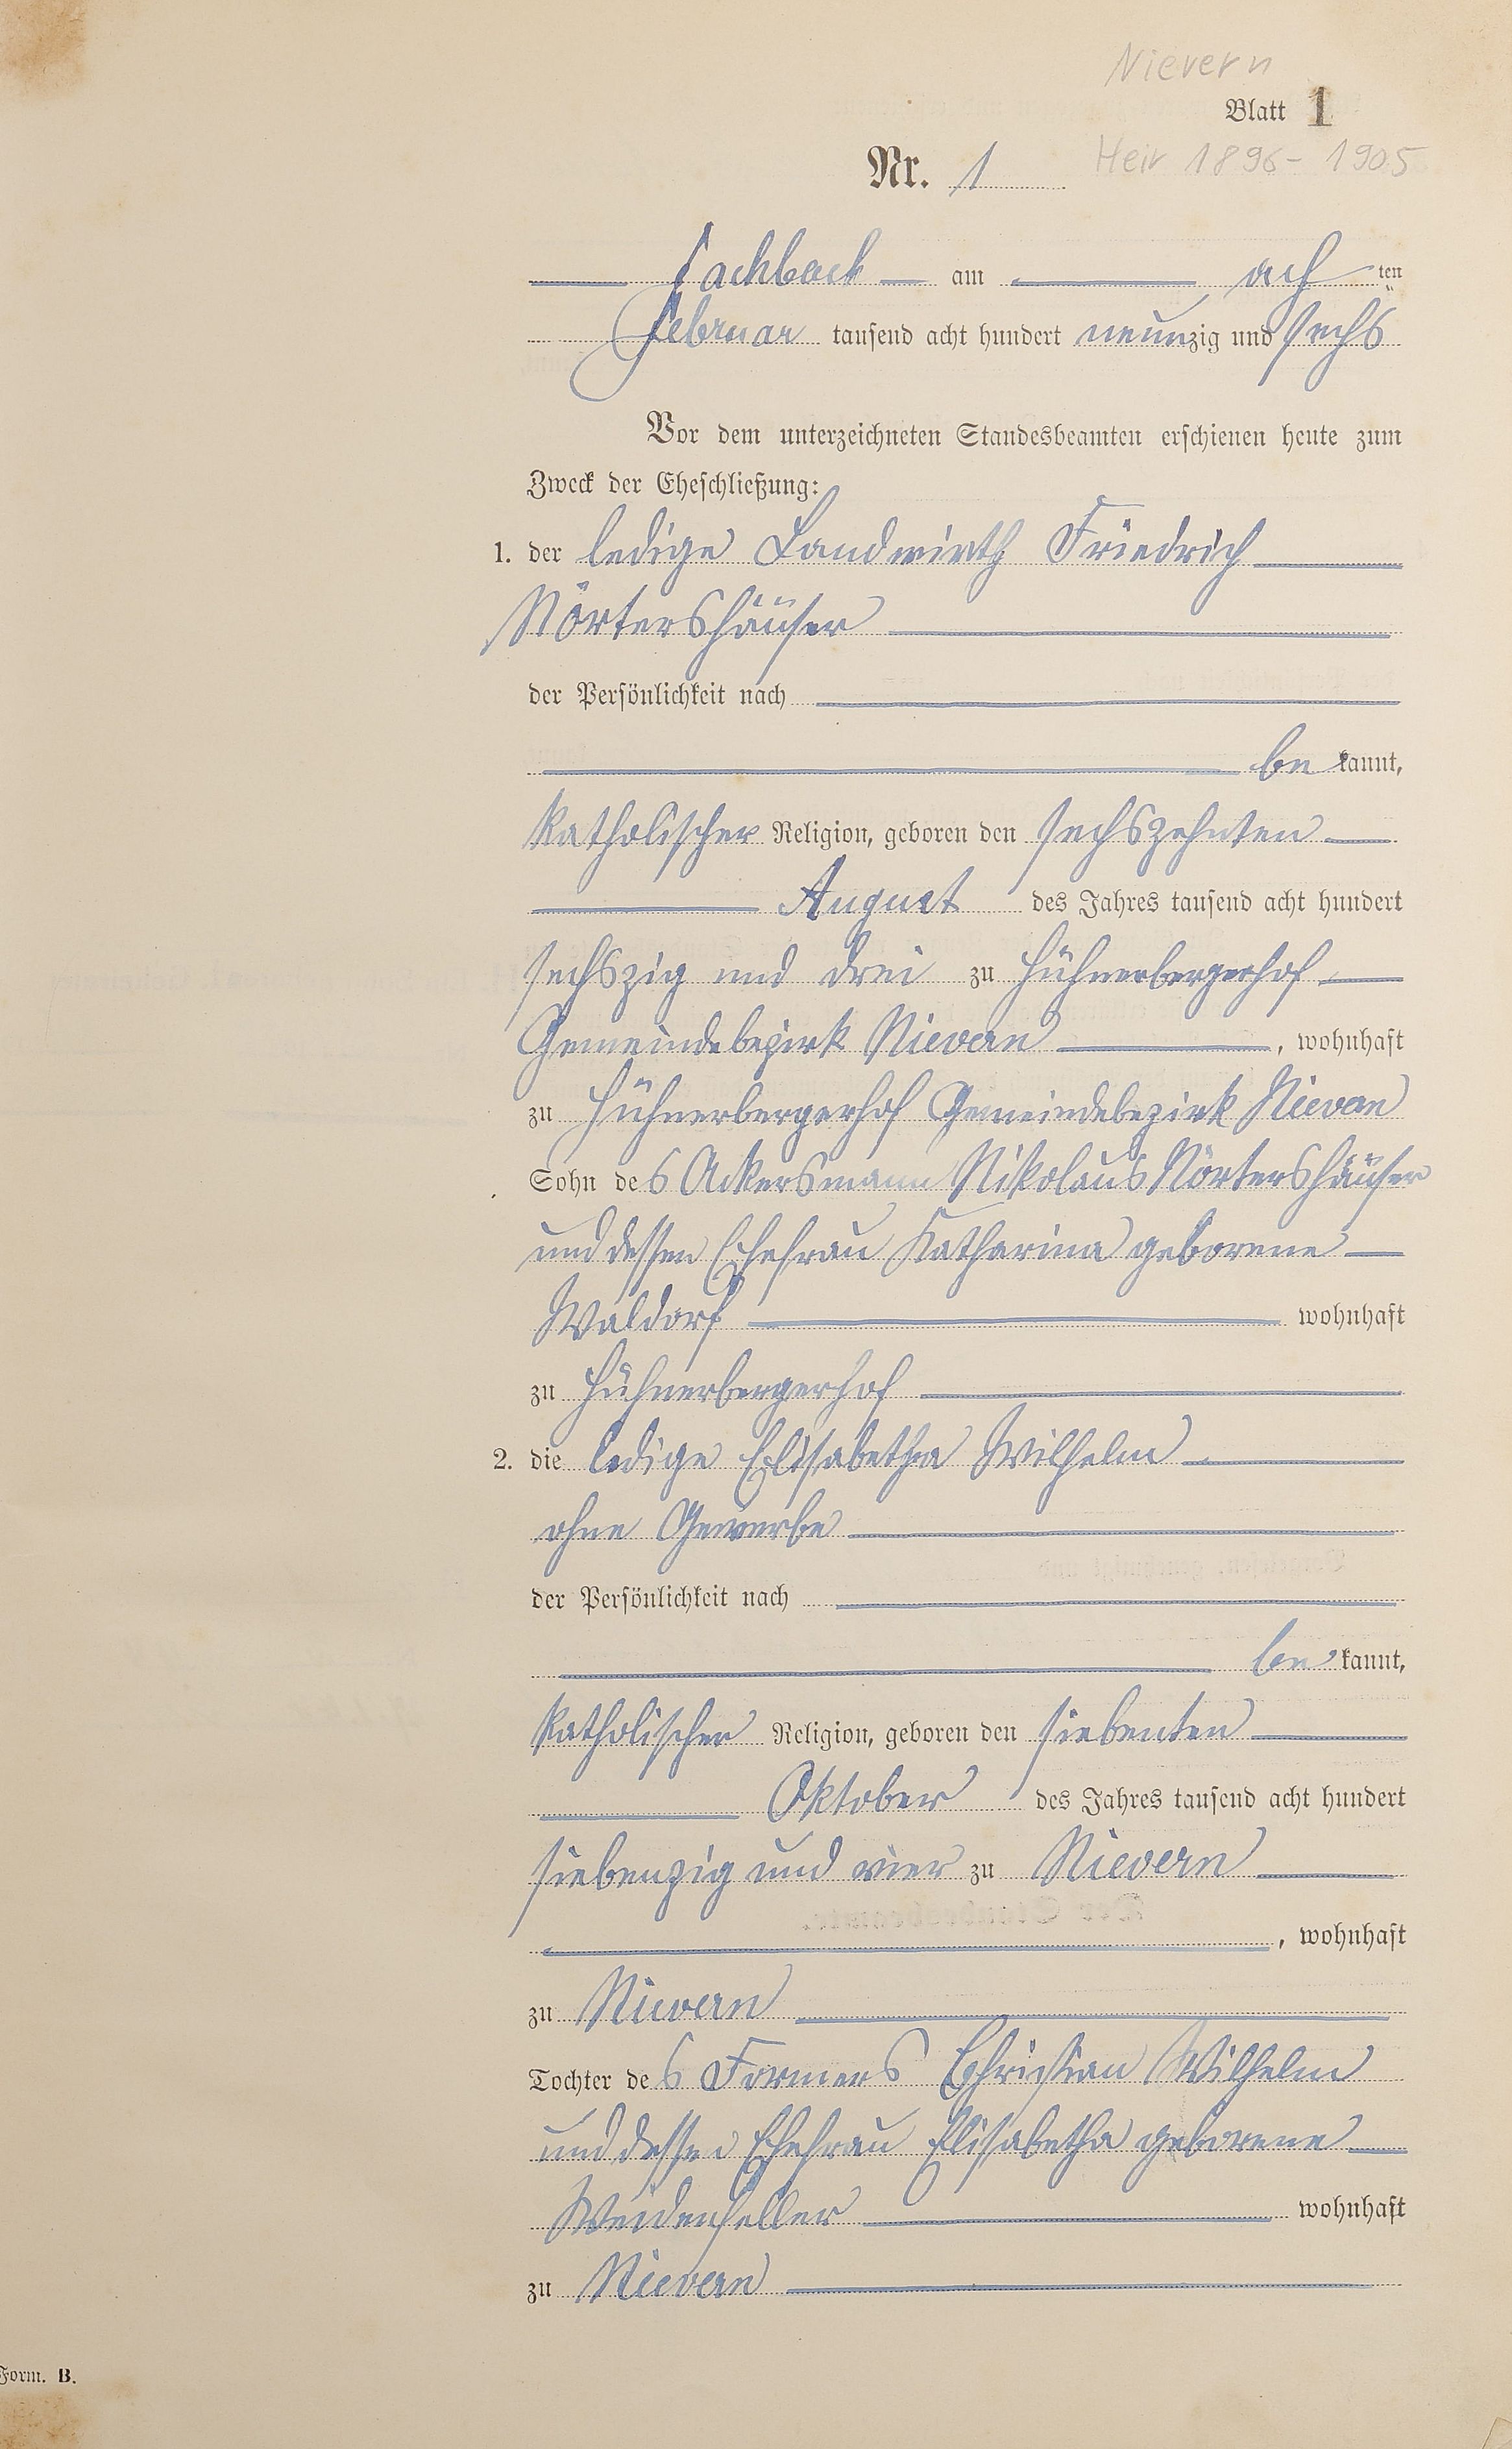 Nievern
Blatt 1
Nr. 1 Heir 1896 - 1905
Fachbach am ach ten
Februar tausend acht hundert neunzig und sechs
Vor dem unterzeichneten Standesbeamten erschienen heute zum
Zweck der Eheschließung:
1. der ledige Landwirth Friedrich
Mörtershäuser
der Persönlichkeit nach
be kannt,
katholischer Religion, geboren den sechszehnten
August des Jahres tausend acht hundert
sechszig und drei zu Hühnerbergerhof
Gemeindebezirk Nievern, wohnhaft
zu Hühnerbergerhof Gemeindebezirk Nievern
Sohn des Ackersmann Nikolaus Mörtershäuser
und dessen Ehefrau Katharina geborene
Waldorf wohnhaft
zu Hühnerbergerhof
2. die ledige Elisabetha Wilhelm
ohne Gewerbe
der Persönlichkeit nach
be kannt,
katholischer Religion, geboren den siebenten
Oktober des Jahres tausend acht hundert
siebenzig und vier zu Nievern
, wohnhaft
zu Nievern
Tochter des Formers Christian Wilhelm
und dessen Ehefrau Elisabetha geborene
Weidenfeller wohnhaft
zu Nievern
Form. B.